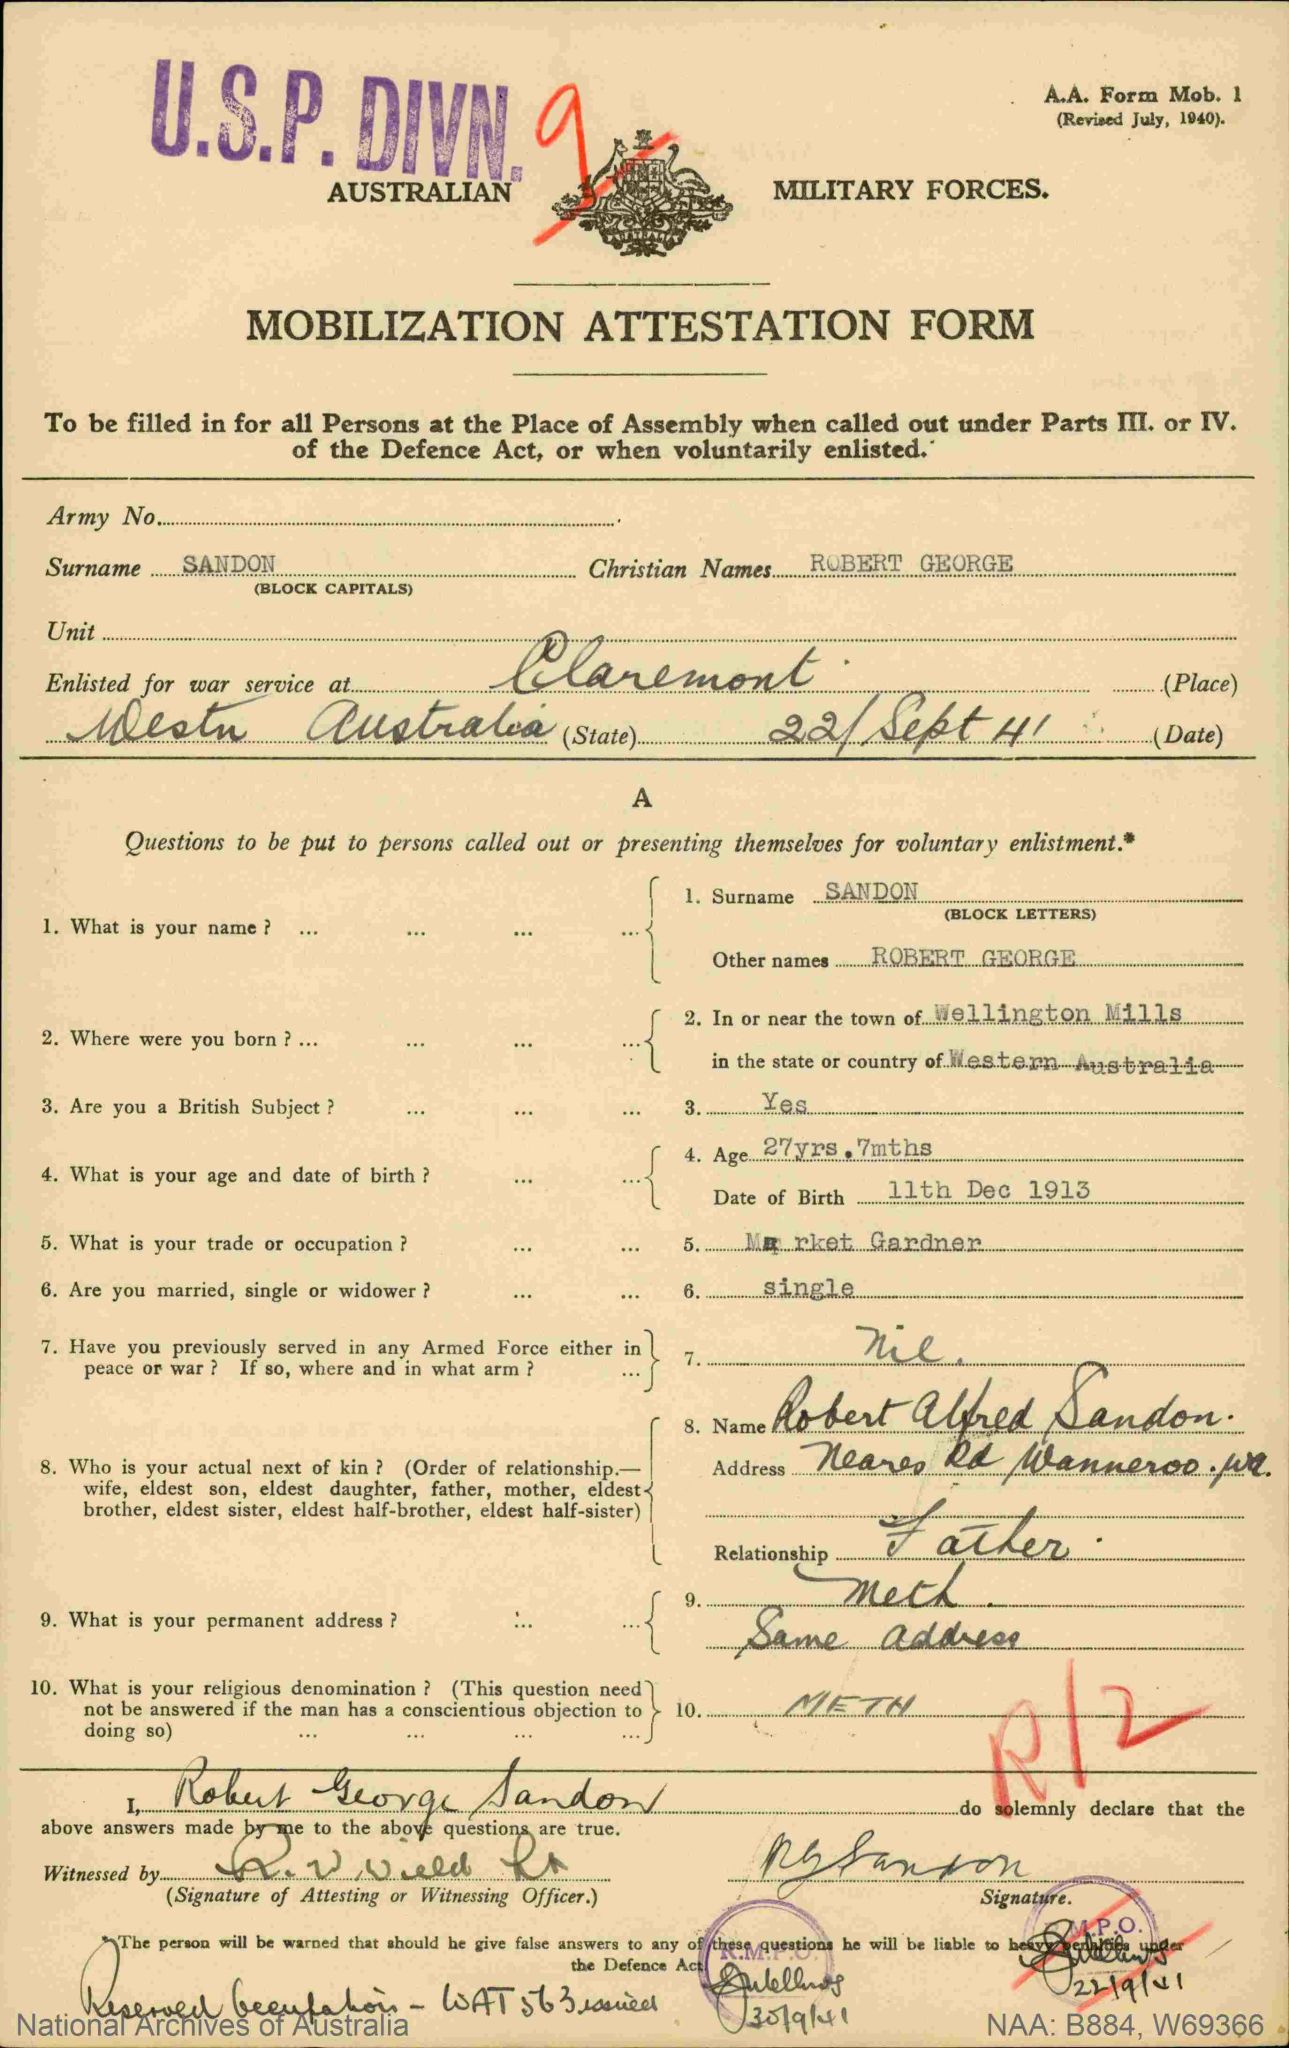 U.S.P. DIVN.
9
A.A. Form Mob. 1
(Revised July, 1940).
AUSTRALIAN MILITARY FORCES.
MOBILIZATION ATTESTATION FORM
To be filled in for all Persons at the Place of Assembly when called out under Parts III. or IV.
of the Defence Act, or when voluntarily enlisted.
Army No.
Surname SANDON Christian Names ROBERT GEORGE
(BLOCK CAPITALS)
Unit
Enlisted for war service at Claremont (Place)
Westn Australia (State) 22/Sept 41 (Date)
A
Questions to be put to persons called out or presenting themselves for voluntary enlistment.*
1. What is your name? ... ... ... ...
1. Surname SANDON
(BLOCK LETTERS)
Other names ROBERT GEORGE
2. Where were you born? ... ... ... ...
2. In or near the town of Wellington Mills
in the state or country of Western Australia
3. Are you a British Subject? ... ... ... 3. Yes
4. What is your age and date of birth? ... ...
4. Age 27yrs.7mths
Date of Birth 11th Dec 1913
5. What is your trade or occupation? ... ... 5. Ma rket Gardner
6. Are you married, single or widower? ... ... 6. single
7. Have you previously served in any Armed Force either in
peace or war? If so, where and in what arm? ...
7. Nil.
8. Who is your actual next of kin? (Order of relationship.—
wife, eldest son, eldest daughter, father, mother, eldest
brother, eldest sister, eldest half-brother, eldest half-sister)
8. Name Robert Alfred Sandon.
Address Neares Rd Wanneroo. WA.
Relationship Father.
9. What is your permanent address? ... ...
9. Meth.
Same address
10. What is your religious denomination? (This question need
not be answered if the man has a conscientious objection to
doing so) ... ... ... ...
10. METH
R/2
I, Robert George Sandon do solemnly declare that the
above answers made by me to the above questions are true.
Witnessed by R. W Wield Lt
(Signature of Attesting or Witnessing Officer.)
RG Sandon
Signature.
*The person will be warned that should he give false answers to any of these questions he will be liable to heavy penalties under
the Defence Act.
R.M.P.O.
30/9/41
M.P.O.
22/9/41
Reserved Occupation - WAT 563 issued
National Archives of Australia
NAA: B884, W69366